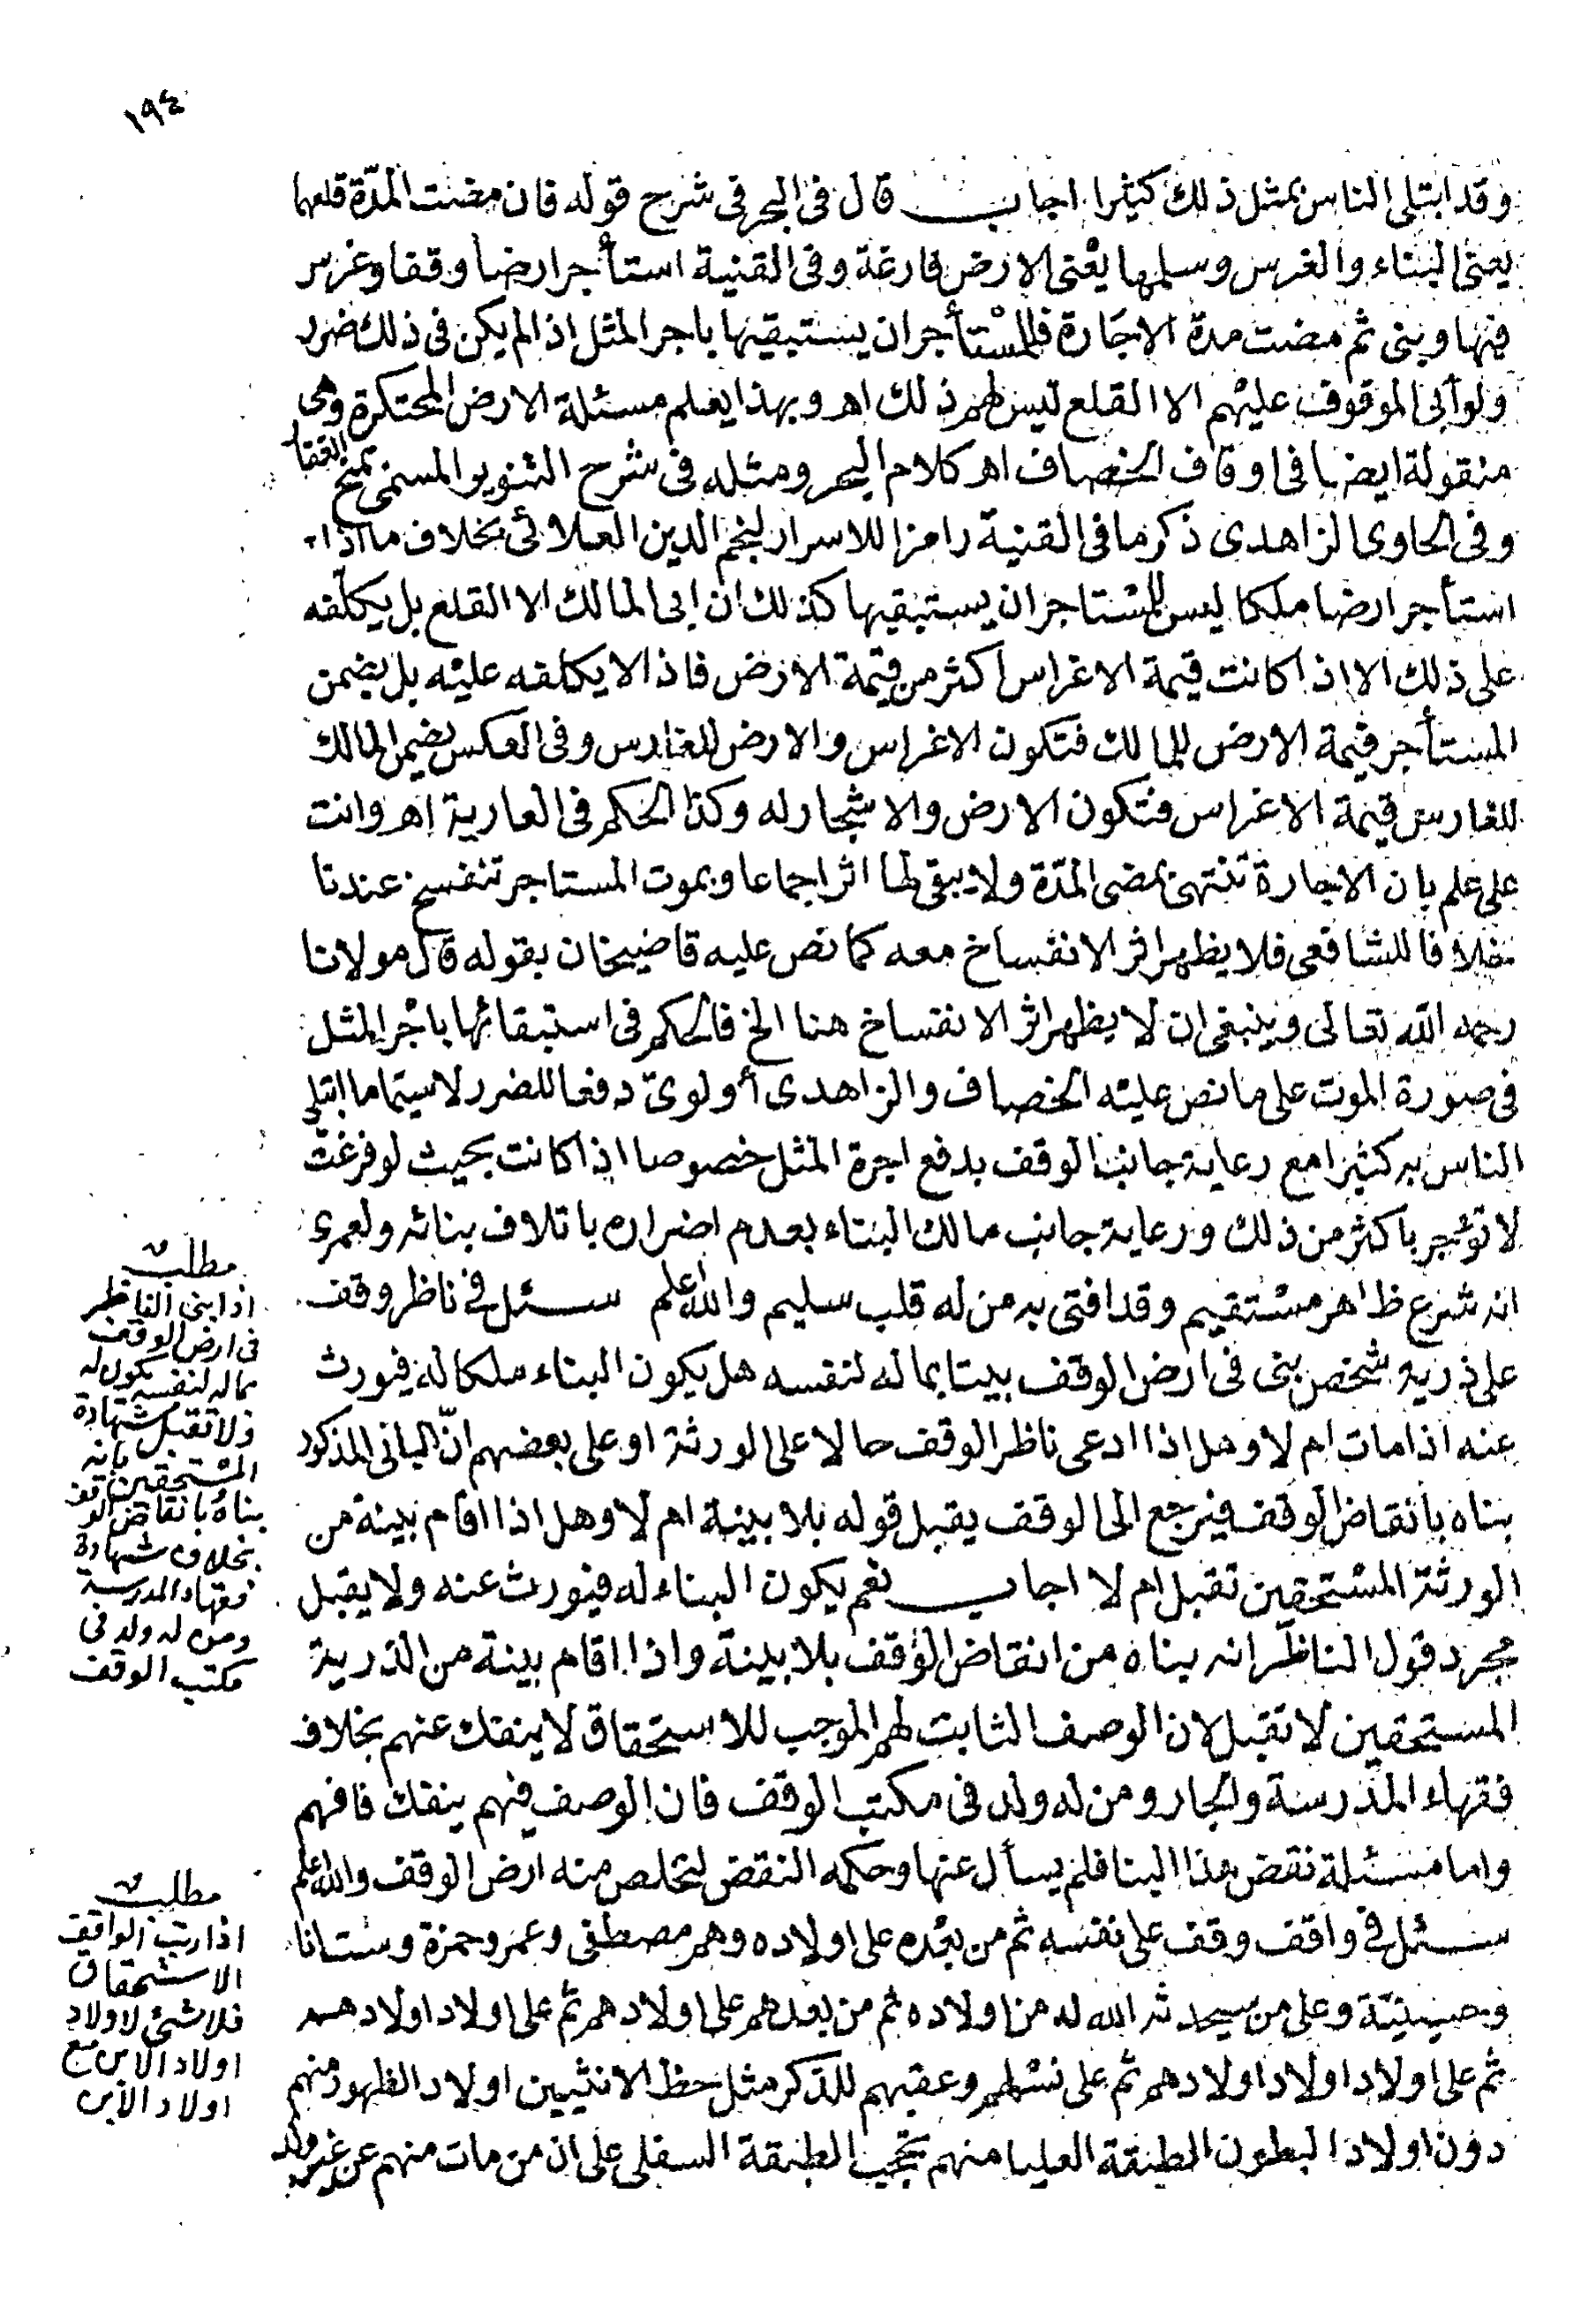 ١٩٤
وقد ابتلى الناس بمثل ذلك كثيرا اجاب قال فى البحر فى شرح قوله فان مضت المدّة قلعهما
يعنى البناء والغرس وسلمها يعنى الارض فارغة وفى القنية استأجر ارضا وقفا وغرس
فيها وبنى ثم مضت مدة الاجارة فللمستأجر ان يستبقيها باجر المثل اذا لم يكن فى ذلك ضرر
ولو أبى الموقوف عليهم الا القلع ليس لهم ذلك اهـ وبهذا يعلم مسئلة الارض المحتكرة وهى
منقولة ايضا فى اوقاف الخصاف اهـ كلام البحر ومثله فى شرح التنوير المسمى بمنح الغفار
وفى الحاوى الزاهدى ذكر ما فى القنية رامزا للاسرار لنجم الدين العلائى بخلاف ما اذا
استأجر ارضا ملكا ليس للمستاجر ان يستبقيها كذلك ان ابى المالك الا القلع بل يكلفه
على ذلك الا اذا كانت قيمة الاغراس اكثر من قيمة الارض فاذا لا يكلفه عليه بل يضمن
المستأجر قيمة الارض للمالك فتكون الاغراس والارض للغارس وفى العكس يضمن المالك
للغارس قيمة الاغراس فتكون الارض والاشجار له وكذا الحكم فى العارية اهـ وانت
على علم بان الاجارة تنتهى بمضى المدّة ولا يبقى لها اثر اجماعا وبموت المستاجر تنفسخ عندنا
خلافا للشافعى فلا يظهر اثر الانفساخ معه كما نص عليه قاضيخان بقوله قال مولانا
رحمه الله تعالى وينبغى ان لا يظهر اثر الانفساخ هنا الخ فالحكم فى استبقائها باجر المثل
فى صورة الموت على ما نص عليه الخصاف والزاهدى أولوىّ دفعا للضرر لاسيما ما ابتلى
الناس به كثيرا مع رعاية جانب الوقف بدفع اجرة المثل خصوصا اذا كانت بحيث لو فرغت
لا تؤجر باكثر من ذلك ورعاية جانب مالك البناء بعدم اضراره باتلاف بنائه ولعمرى
انه شرع ظاهر مستقيم وقد افتى به من له قلب سليم والله اعلم سئل فى ناظر وقف
على ذرية شخص بنى فى ارض الوقف بيتا بماله لنفسه هل يكون البناء ملكا له فيورث
عنه اذا مات ام لا وهل اذا ادعى ناظر الوقف حالا على الورثة او على بعضهم انّ البانى المذكور
بناه بانقاض الوقف فيرجع الى الوقف يقبل قوله بلا بينة ام لا وهل اذا اقام بينة من
الورثة المستحقين تقبل ام لا اجاب نعم يكون البناء له فيورث عنه ولا يقبل
مجرد قول الناظر انه بناه من انقاض الوقف بلا بينة واذا اقام بينة من الذرية
المستحقين لا تقبل لان الوصف الثابت لهم الموجب للاستحقاق لا ينفك عنهم بخلاف
فقهاء المدرسة والجار ومن له ولد فى مكتب الوقف فان الوصف فيهم ينفك فافهم
واما مسئلة نقض هذا البنا فلم يسأل عنها وحكمه النقض لتخلص منه ارض الوقف والله اعلم
سئل فى واقف وقف على نفسه ثم من بعده على اولاده وهم مصطفى وعمر وحمزة وستانا
وحسينيّة وعلى من سيحدثه الله له من اولاده ثم من بعدهم على اولادهم ثم على اولاد اولادهم
ثم على اولاد اولاد اولادهم ثم على نسلهم وعقبهم للذكر مثل حظ الانثيين اولاد الظهور منهم
دون اولاد البطون الطبقة العليا منهم تحجب الطبقة السفلى على ان من مات منهم عن غير ولد
مطلب
اذا بنى الناظر
فى ارض الوقف
بماله لنفسه يكون له
ولا تقبل شهادة
المستحقين بانه
بناه بانقاض الوقف
بخلاف شهادة
فقهاء المدرسة
ومن له ولد فى
مكتب الوقف
مطلب
اذا رتب الواقف
الاستحقاق
فلا شئ لاولاد
اولاد الابن مع
اولاد الابن